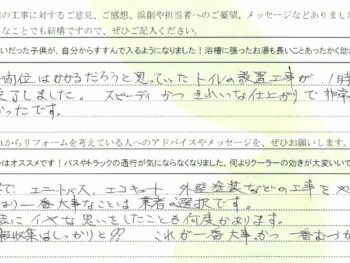 の工事に対するご意見、ご感想、浜創や担当者へのご要望、メッセージなどありました
なことでも結構ですので、ぜひご記入ください。
いだった子供が、自分からすすんで入るようになりました！浴槽に張ったお湯も長いことあったかく助
位はかかるだろうと思っていたトイレの設置工事が、1時
完了しました。スピーディかつきれいな仕上りで非常
かったです。
れからリフォームを考えている人へのアドバイスやメッセージを、ぜひお願いします。
はオススメです！バスやトラックの通行が気にならなくなりました。何よりクーラーの効きが大変いい
で ユニットバス、エコキュート、外壁塗装などの工事を
はり一番大事なことは業者の選択です。
にイヤな思いをしたことも何度かあります。
収集はしっかりと!! これが一番大事かつ一番むづか